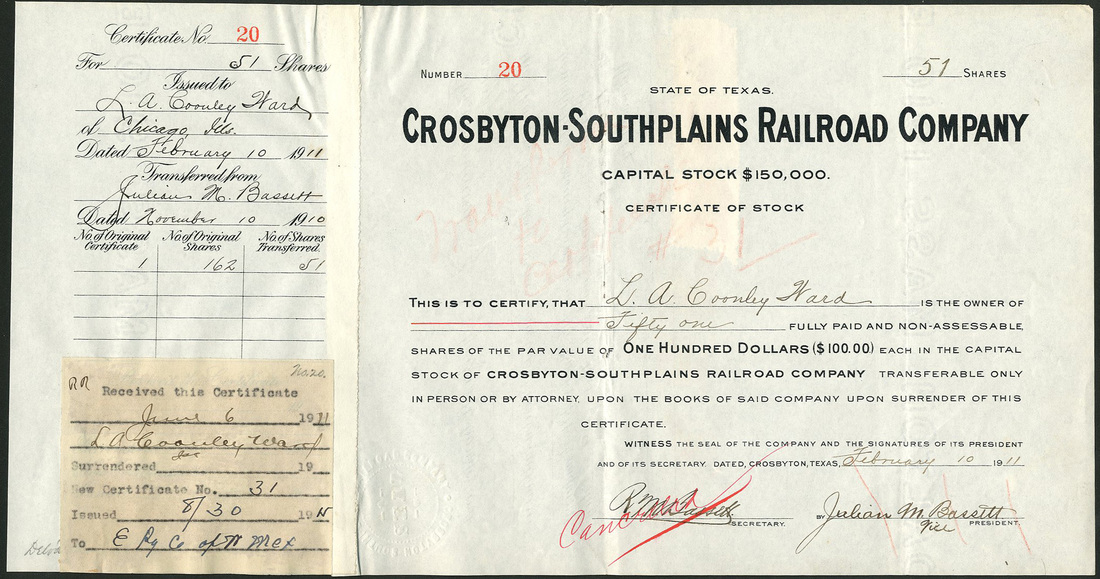 Certificate No. 20
For 51 Shares
Issued to
L. A. Coonley Ward
of Chicago, Ills.
Dated February 10 1911
Transferred from
Julian M. Bassett
Dated November 10 1910
No. of Original Certificate No. of Original Shares No. of Shares Transferred.
1 162 51
No 20.
RR
Received this Certificate
June 6 1911
L A Coonley Ward
Surrendered 19
New Certificate No. 31
Issued 8/30 19
To E Ry Co of N Mex
NUMBER 20
51 SHARES
STATE OF TEXAS.
CROSBYTON-SOUTHPLAINS RAILROAD COMPANY
CAPITAL STOCK $150,000.
CERTIFICATE OF STOCK
# 31
THIS IS TO CERTIFY, THAT L. A. Coonley Ward IS THE OWNER OF
Fifty one FULLY PAID AND NON-ASSESSABLE
SHARES OF THE PAR VALUE OF ONE HUNDRED DOLLARS ($100.00) EACH IN THE CAPITAL
STOCK OF CROSBYTON-SOUTHPLAINS RAILROAD COMPANY TRANSFERABLE ONLY
IN PERSON OR BY ATTORNEY, UPON THE BOOKS OF SAID COMPANY UPON SURRENDER OF THIS
CERTIFICATE.
WITNESS THE SEAL OF THE COMPANY AND THE SIGNATURES OF ITS PRESIDENT
AND OF ITS SECRETARY. DATED, CROSBYTON, TEXAS, February 10 1911
Cancelled
SECRETARY.
BY Julian M. Bassett
Vice PRESIDENT.